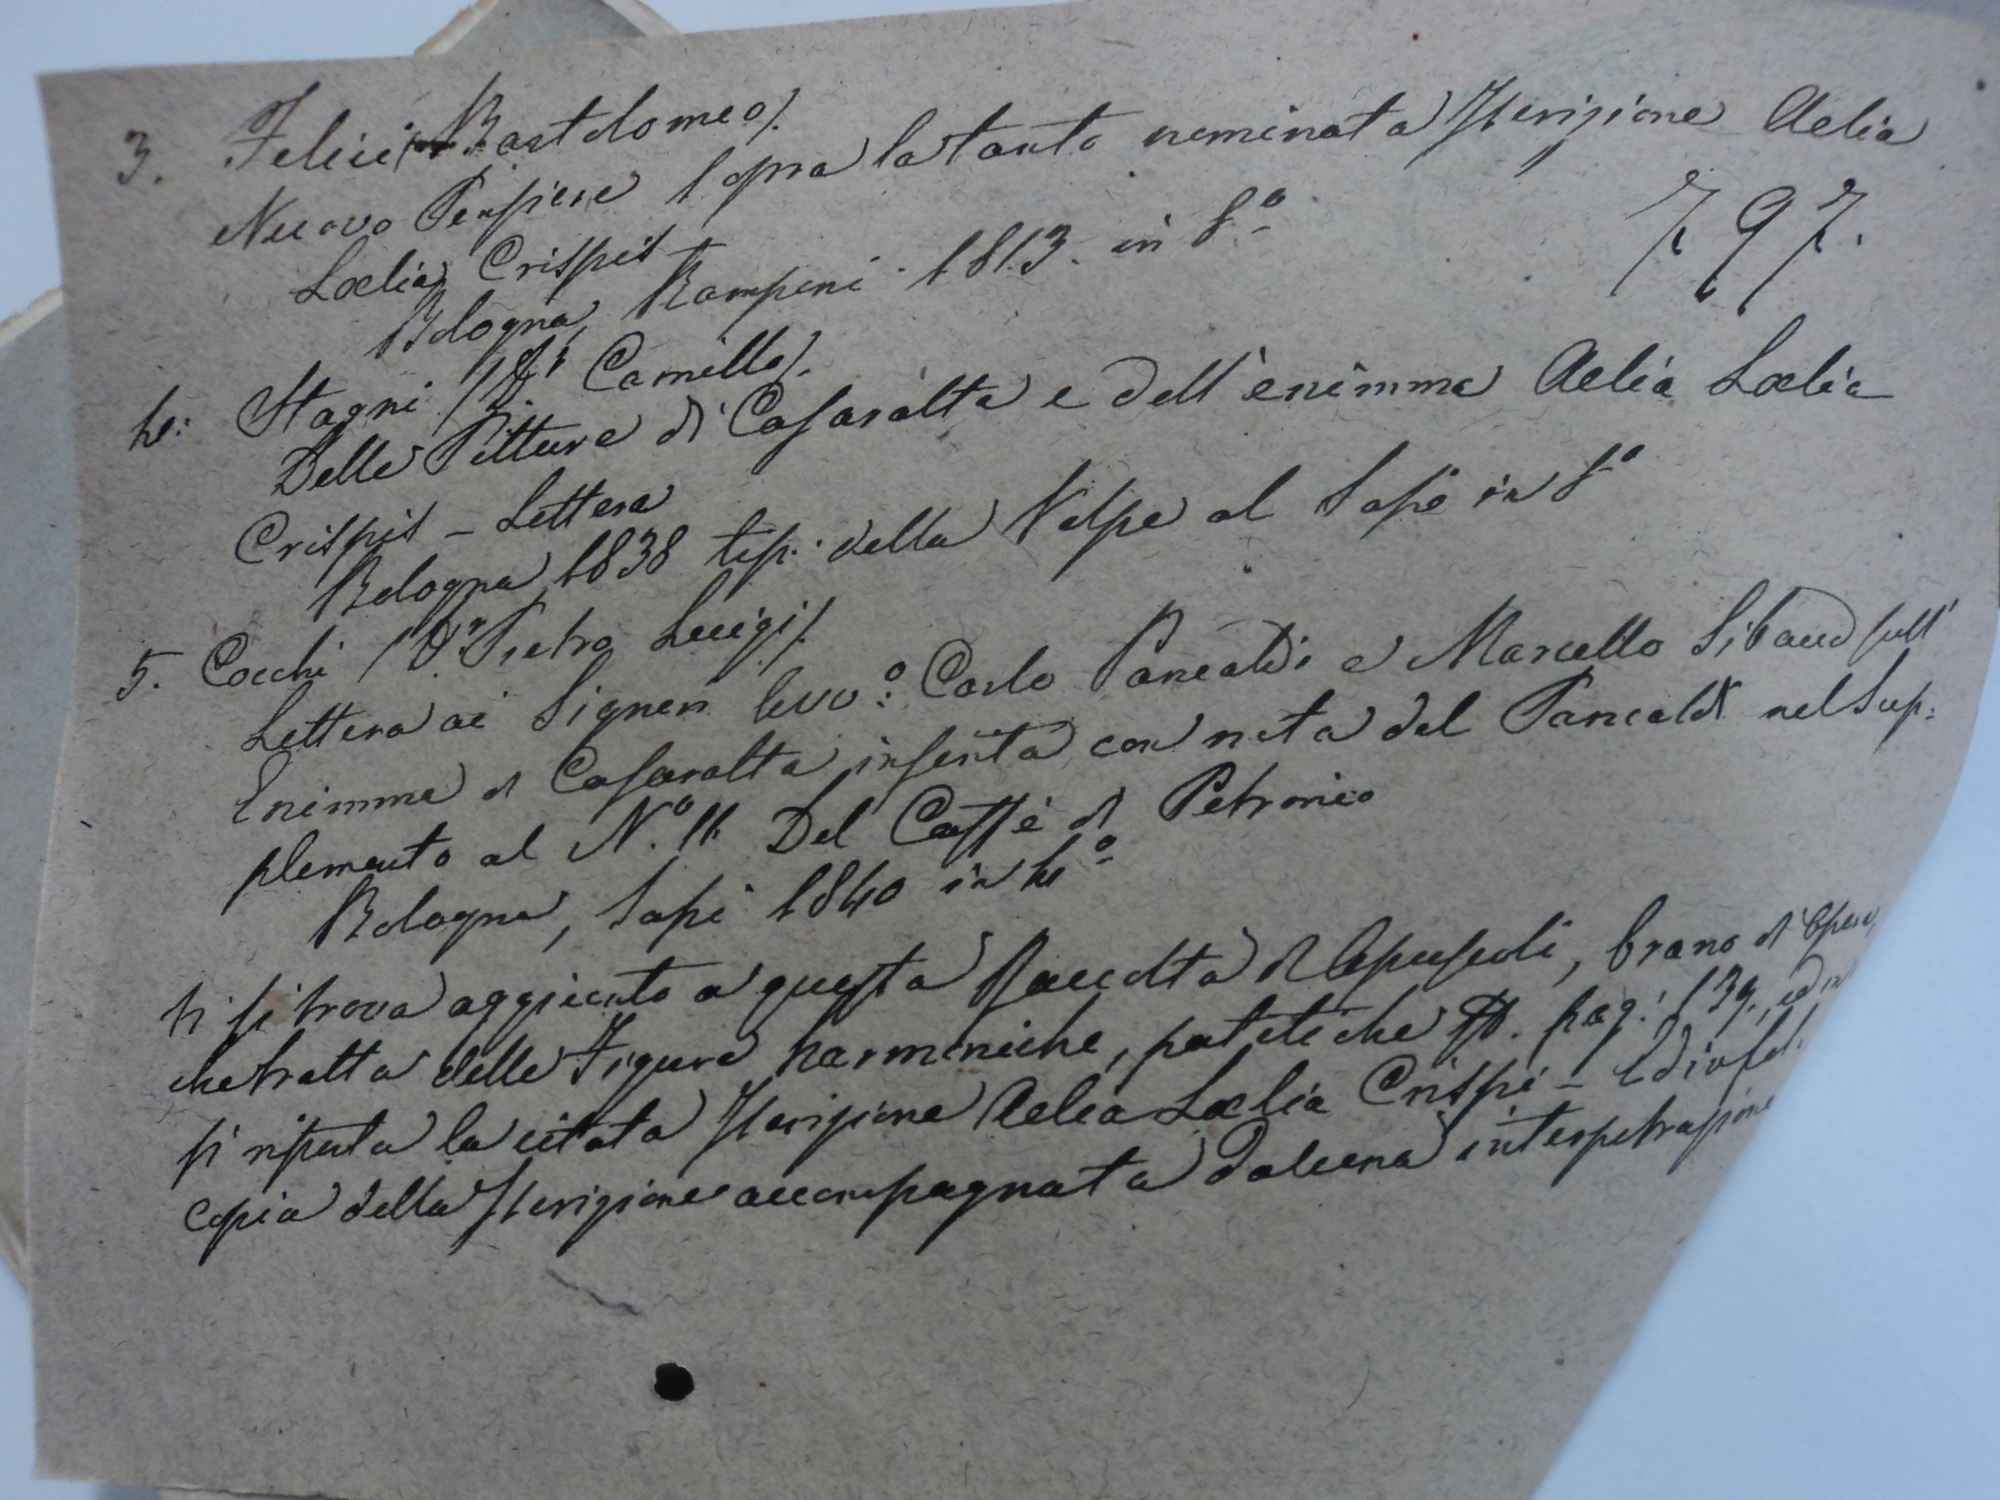 3. Felici (Bartolomeo).
Nuovo Pensiere sopra la tanto nominata Iscrizione Aelia
Laelia Crispis
797.
Bologna, Ramponi. 1813. in 8.º
4: Stagni (Dr. Camillo).
Delle Pitture di Casaralta e dell'enimma Aelia Laelia
Crispis - Lettera
Bologna 1838 tip. della Volpe al Sassi in 8º
5. Cocchi (Dr. Pietro Luigi).
Lettera ai Signori Carlo Pancaldi e Marcello sull'
Enimma di Casaralta inserita con nota del Pancaldi nel Sup:
plemento al N.º 11 Del Caffè di Petronio
Bologna, Sassi 1840 in 4º
Si trova aggiunto a questa Raccolta di Opuscoli, brano di
che tratta delle Figure harmoniche, patetiche pag: 139,
si riporta la citata Iscrizione Aelia Laelia Crispi -
copia della Iscrizione accompagnata da interpetrazione